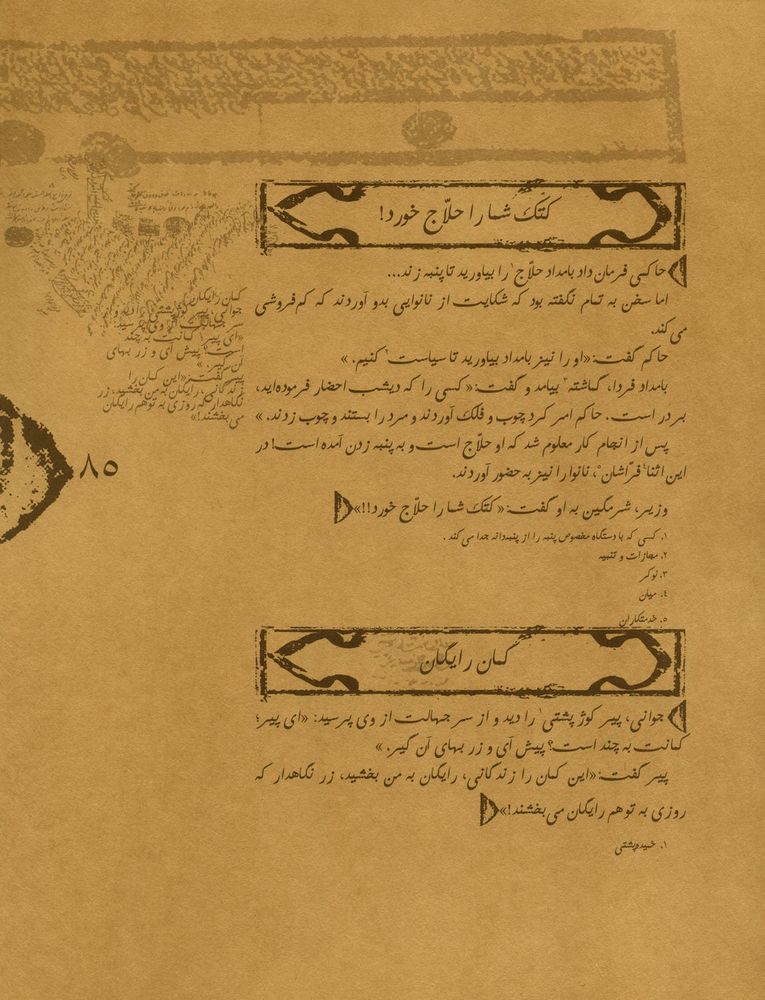 کتک شما را حلّاج خورد!
حاکمی فرمان داد بامداد حلّاج۱ را بیاورید تا پنبه زند...
اما سخن به تمام نگفته بود که شکایت از نانوایی بدو آوردند که کم‌فروشی
می‌کند.
حاکم گفت: «او را نیز بامداد بیاورید تا سیاست۲ کنیم.»
بامداد فردا، گماشته۳ بیامد و گفت: «کسی را که دیشب احضار فرموده‌اید،
بر در است. حاکم امر کرد چوب و فلک آوردند و مرد را بستند و چوب زدند.»
پس از انجام کار معلوم شد که او حلاج است و به پنبه زدن آمده است! در
این اثنا۴ فرّاشان۵، نانوا را نیز به حضور آوردند.
وزیر، شرمگین به او گفت: «کتک شما را حلّاج خورد!!»
۱. کسی که با دستگاه مخصوص پنبه را از پنبه‌دانه جدا می‌کند.
۲. مجازات و تنبیه
۳. نوکر
۴. میان
۵. خدمتکاران
کمان رایگان
جوانی، پیر کوژ پشتی۱ را دید و از سر جهالت از وی پرسید: «ای پیر؛
کمانت به چند است؟ پیش آی و زر بهای آن گیر.»
پیر گفت: «این کمان را زندگانی، رایگان به من بخشید، زر نگاهدار که
روزی به تو هم رایگان می‌بخشند!»
۱. خمیده‌پشتی
کمان رایگان
جوانی، پیر کوژ پشتی را دید و از
سر جهالت از وی پرسید:
«ای پیر! کمانت به چند
است؟ پیش آی و زر بهای
آن گیر.»
پیر گفت: «این کمان را
زندگانی رایگان به من بخشید، زر
نگاهدار که روزی به تو هم رایگان
می‌بخشند!»
۸۵